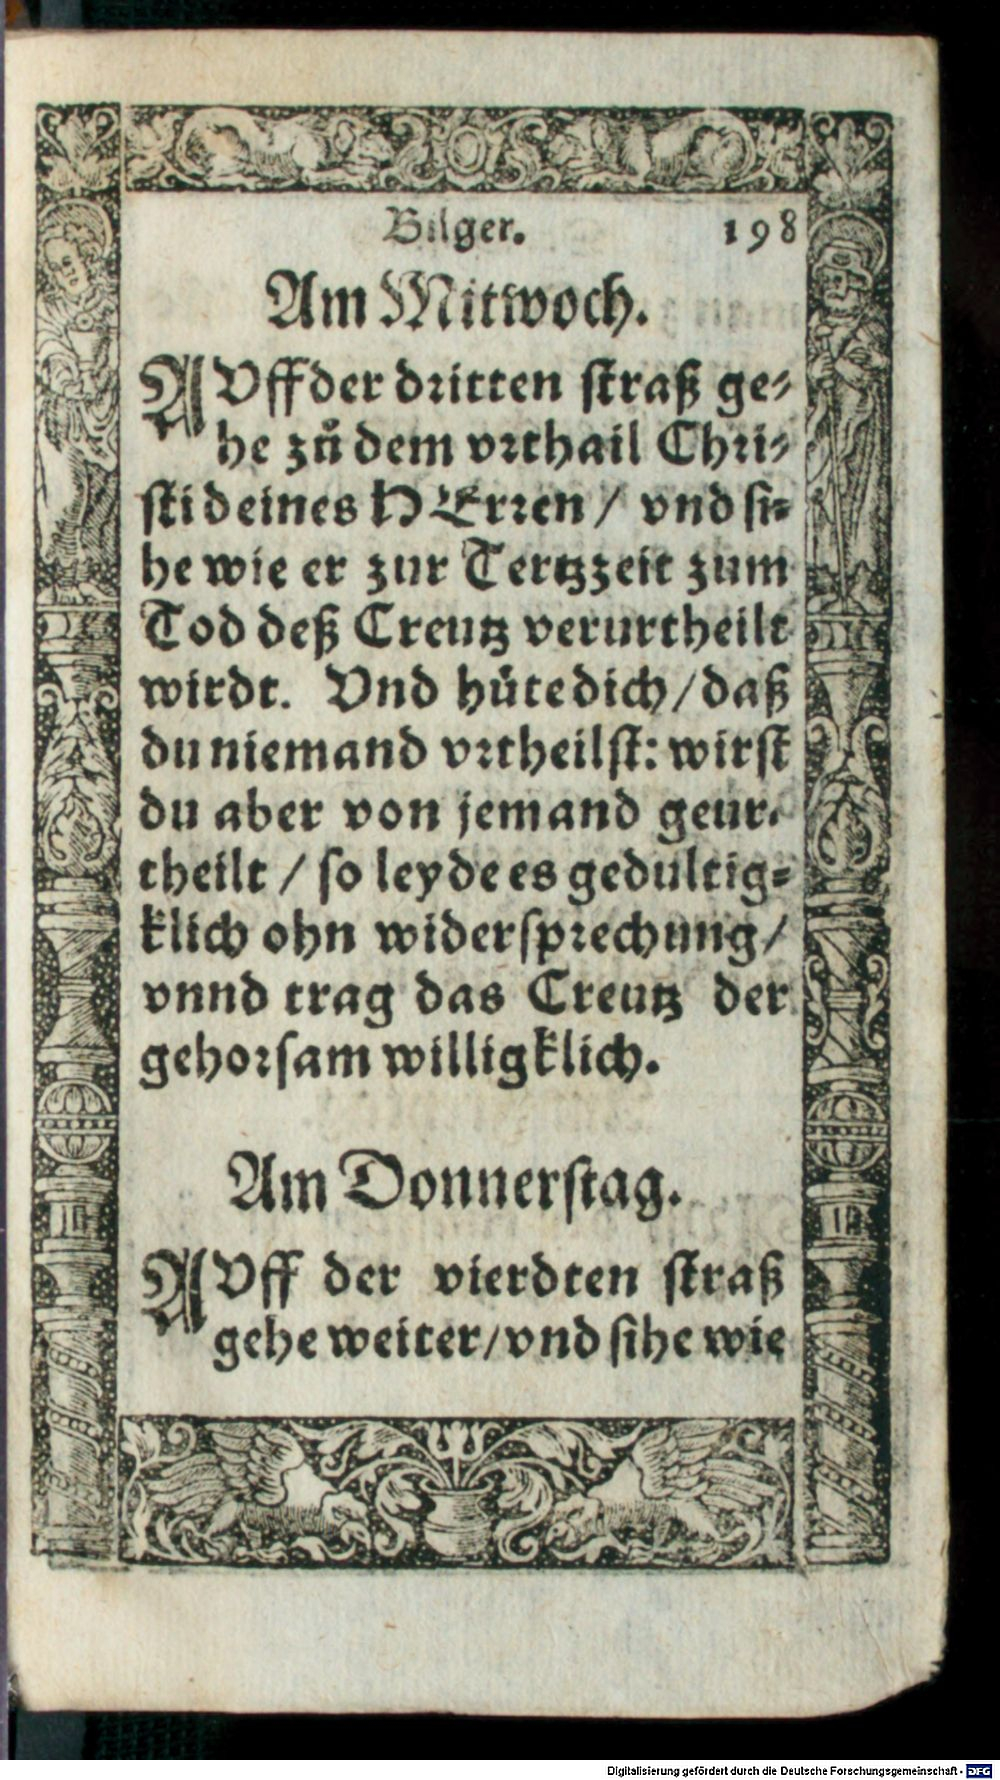 Bilger. 198
Am Mitwoch.
AVff der dritten straß ge-
he zuͦ dem vrthail Chri-
sti deines HErren / vnd si-
he wie er zur Tertzzeit zum
Tod deß Creutz verurtheilt
wirdt. Vnd huͤte dich / daß
du niemand vrtheilst: wirst
du aber von jemand geur-
theilt / so leyde es gedultig-
klich ohn widersprechung /
vnnd trag das Creutz der
gehorsam willigklich.
Am Donnerstag.
AVff der vierdten straß
gehe weiter / vnd sihe wie
Digitalisierung gefördert durch die Deutsche Forschungsgemeinschaft - DFG